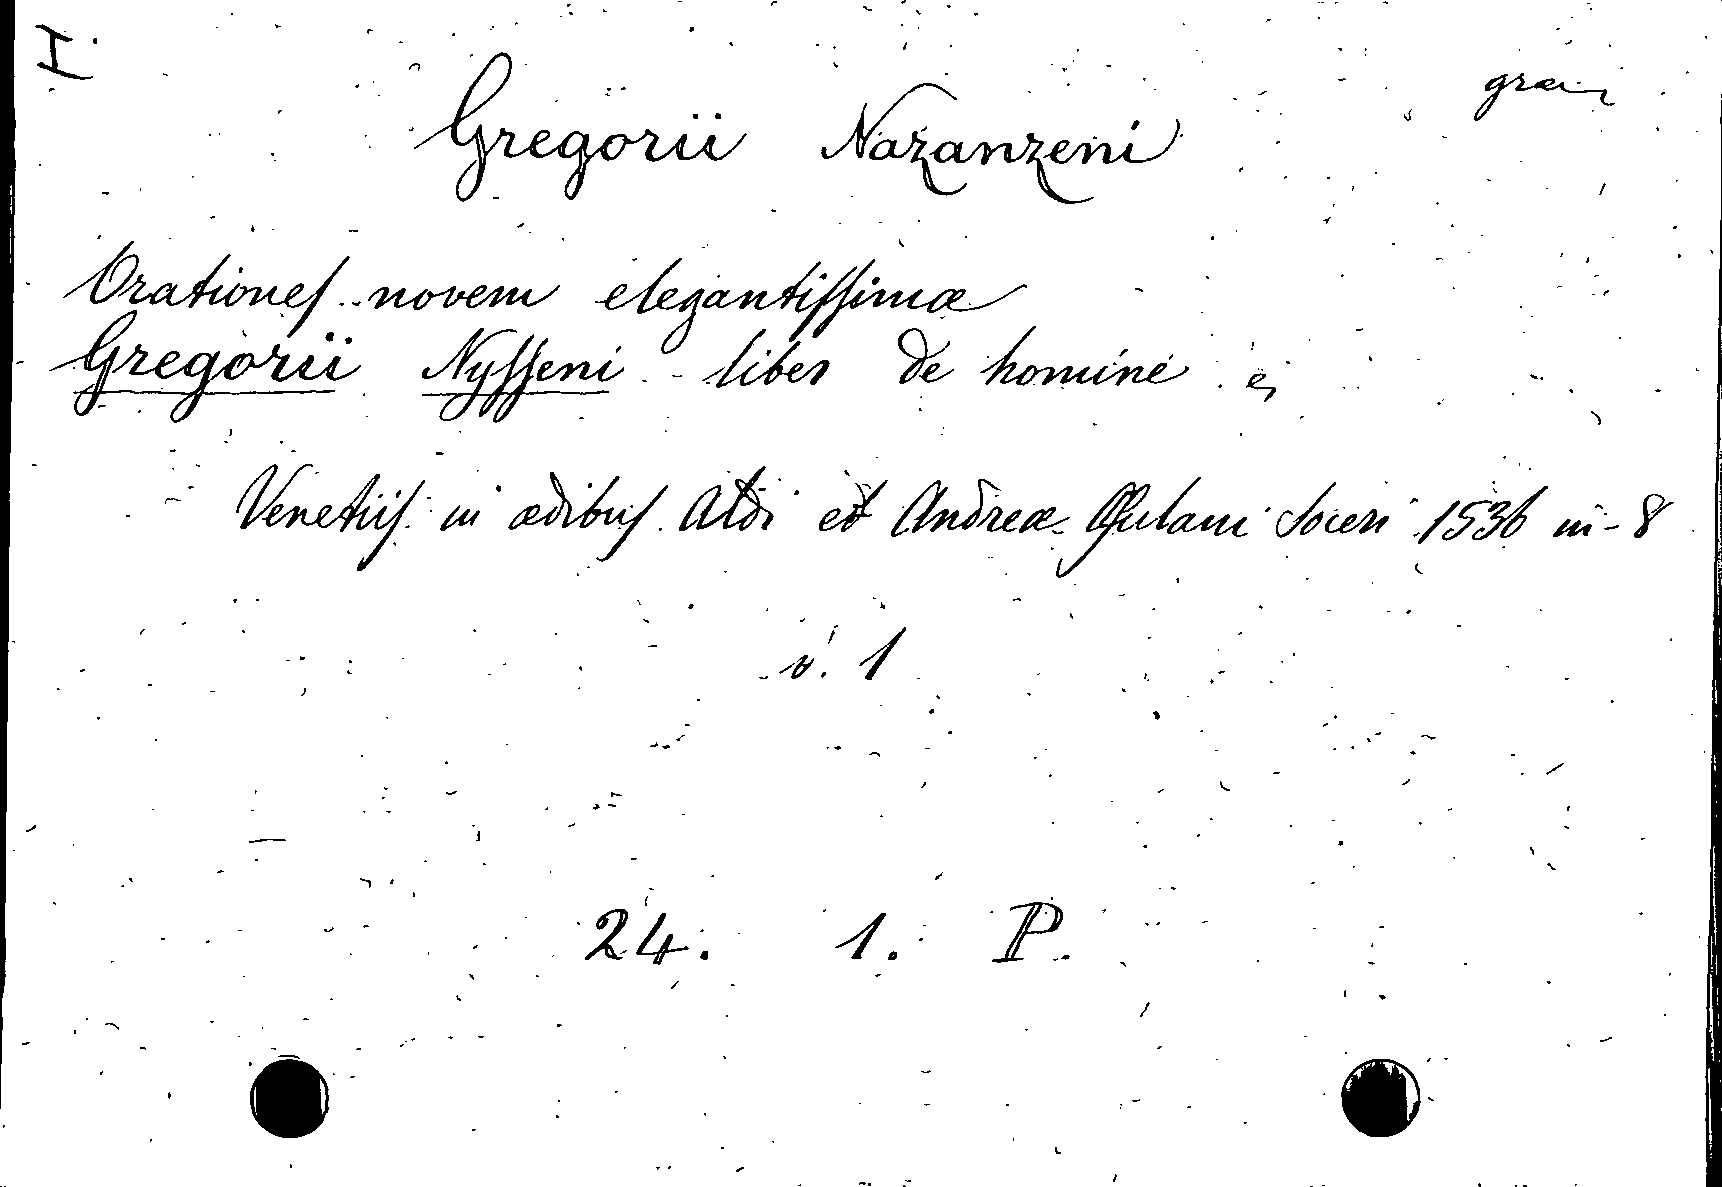 I.
Gregorii Nazanzeni
Orationes novem elegantissimæ
Gregorii Nysseni liber de homine
Venetiis in ædibus Aldi et Andreæ Asulani Soceri 1536 in-8
v. 1
24. 1. P.